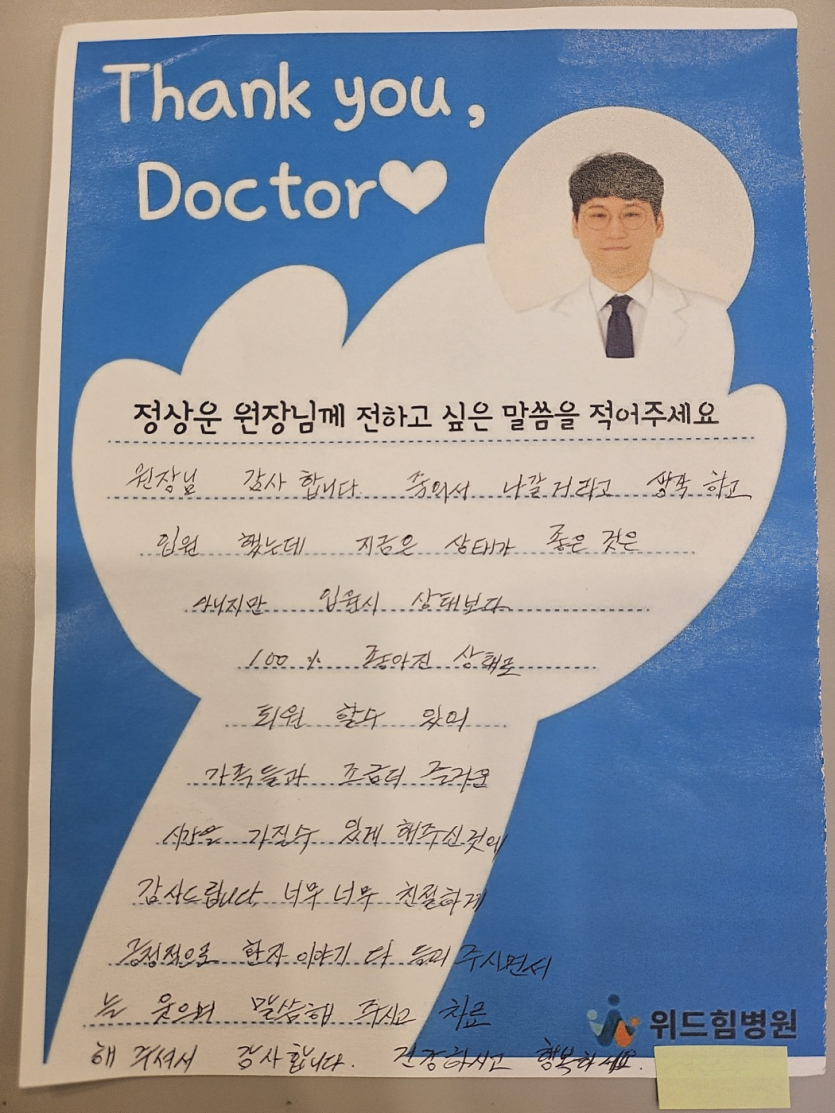 Thank you,
Doctor
정상운 원장님께 전하고 싶은 말씀을 적어주세요
원장님 감사 합니다. 죽어서 나갈거라고 생각 하고
입원 했는데 지금은 상태가 좋은 것은
아니지만 입원시 상태보다
100 % 좋아진 상태로
퇴원 할수 있어
가족들과 조금더 즐거운
시간을 가질수 있게 해주신것에
감사드립니다. 너무 너무 친절하게
긍정적으로 환자 이야기 다 들어 주시면서
늘 웃으며 말씀해 주시고 치료
해 주셔서 감사합니다. 건강하시고 행복하세요.
위드힘병원